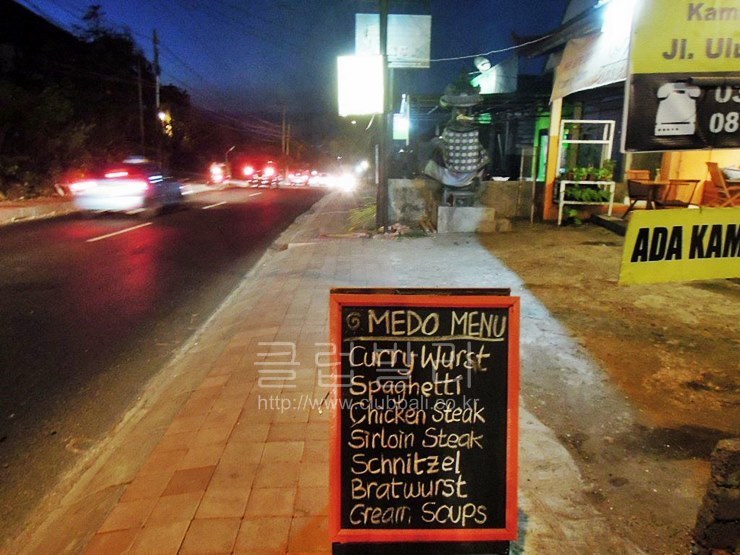 Kam
Jl. Ulu
03
08
ADA KAM
MEDO MENU
Curry Wurst
Spaghetti
Chicken Steak
Sirloin Steak
Schnitzel
Bratwurst
Cream Soups
클럽발리
http://www.clubbali.co.kr